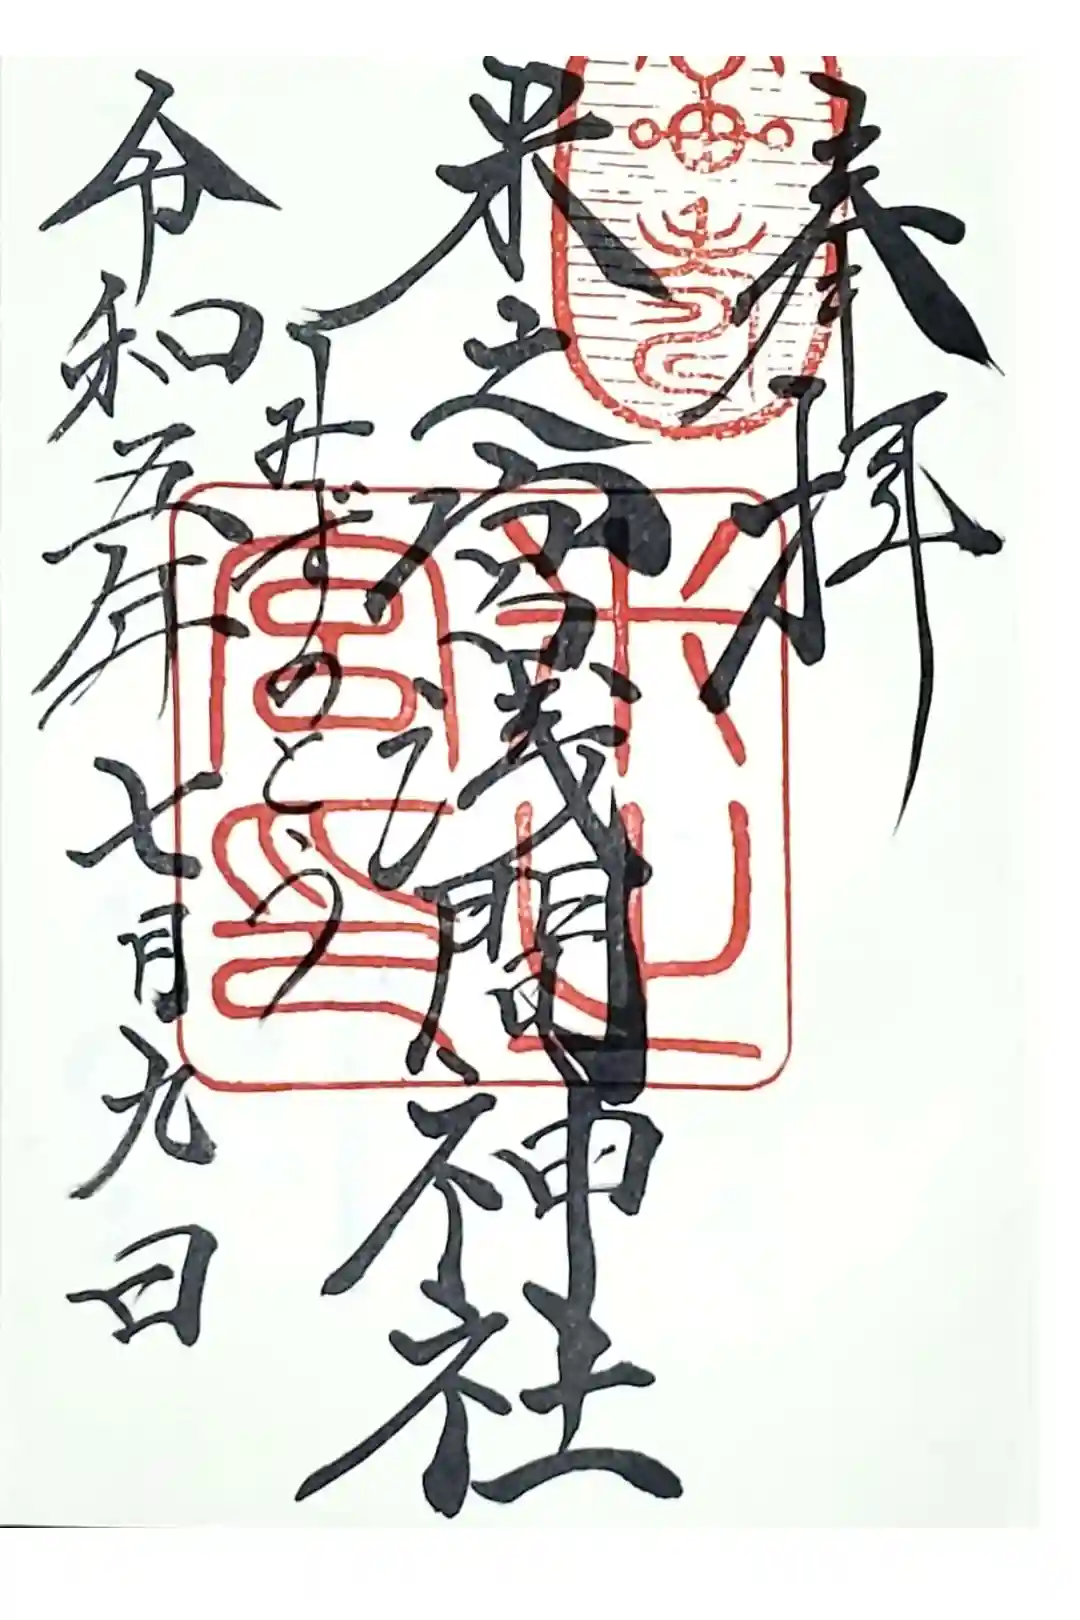 奉拝
米之宮浅間神社
みずのとう
令和五年七月九日
米之宮印